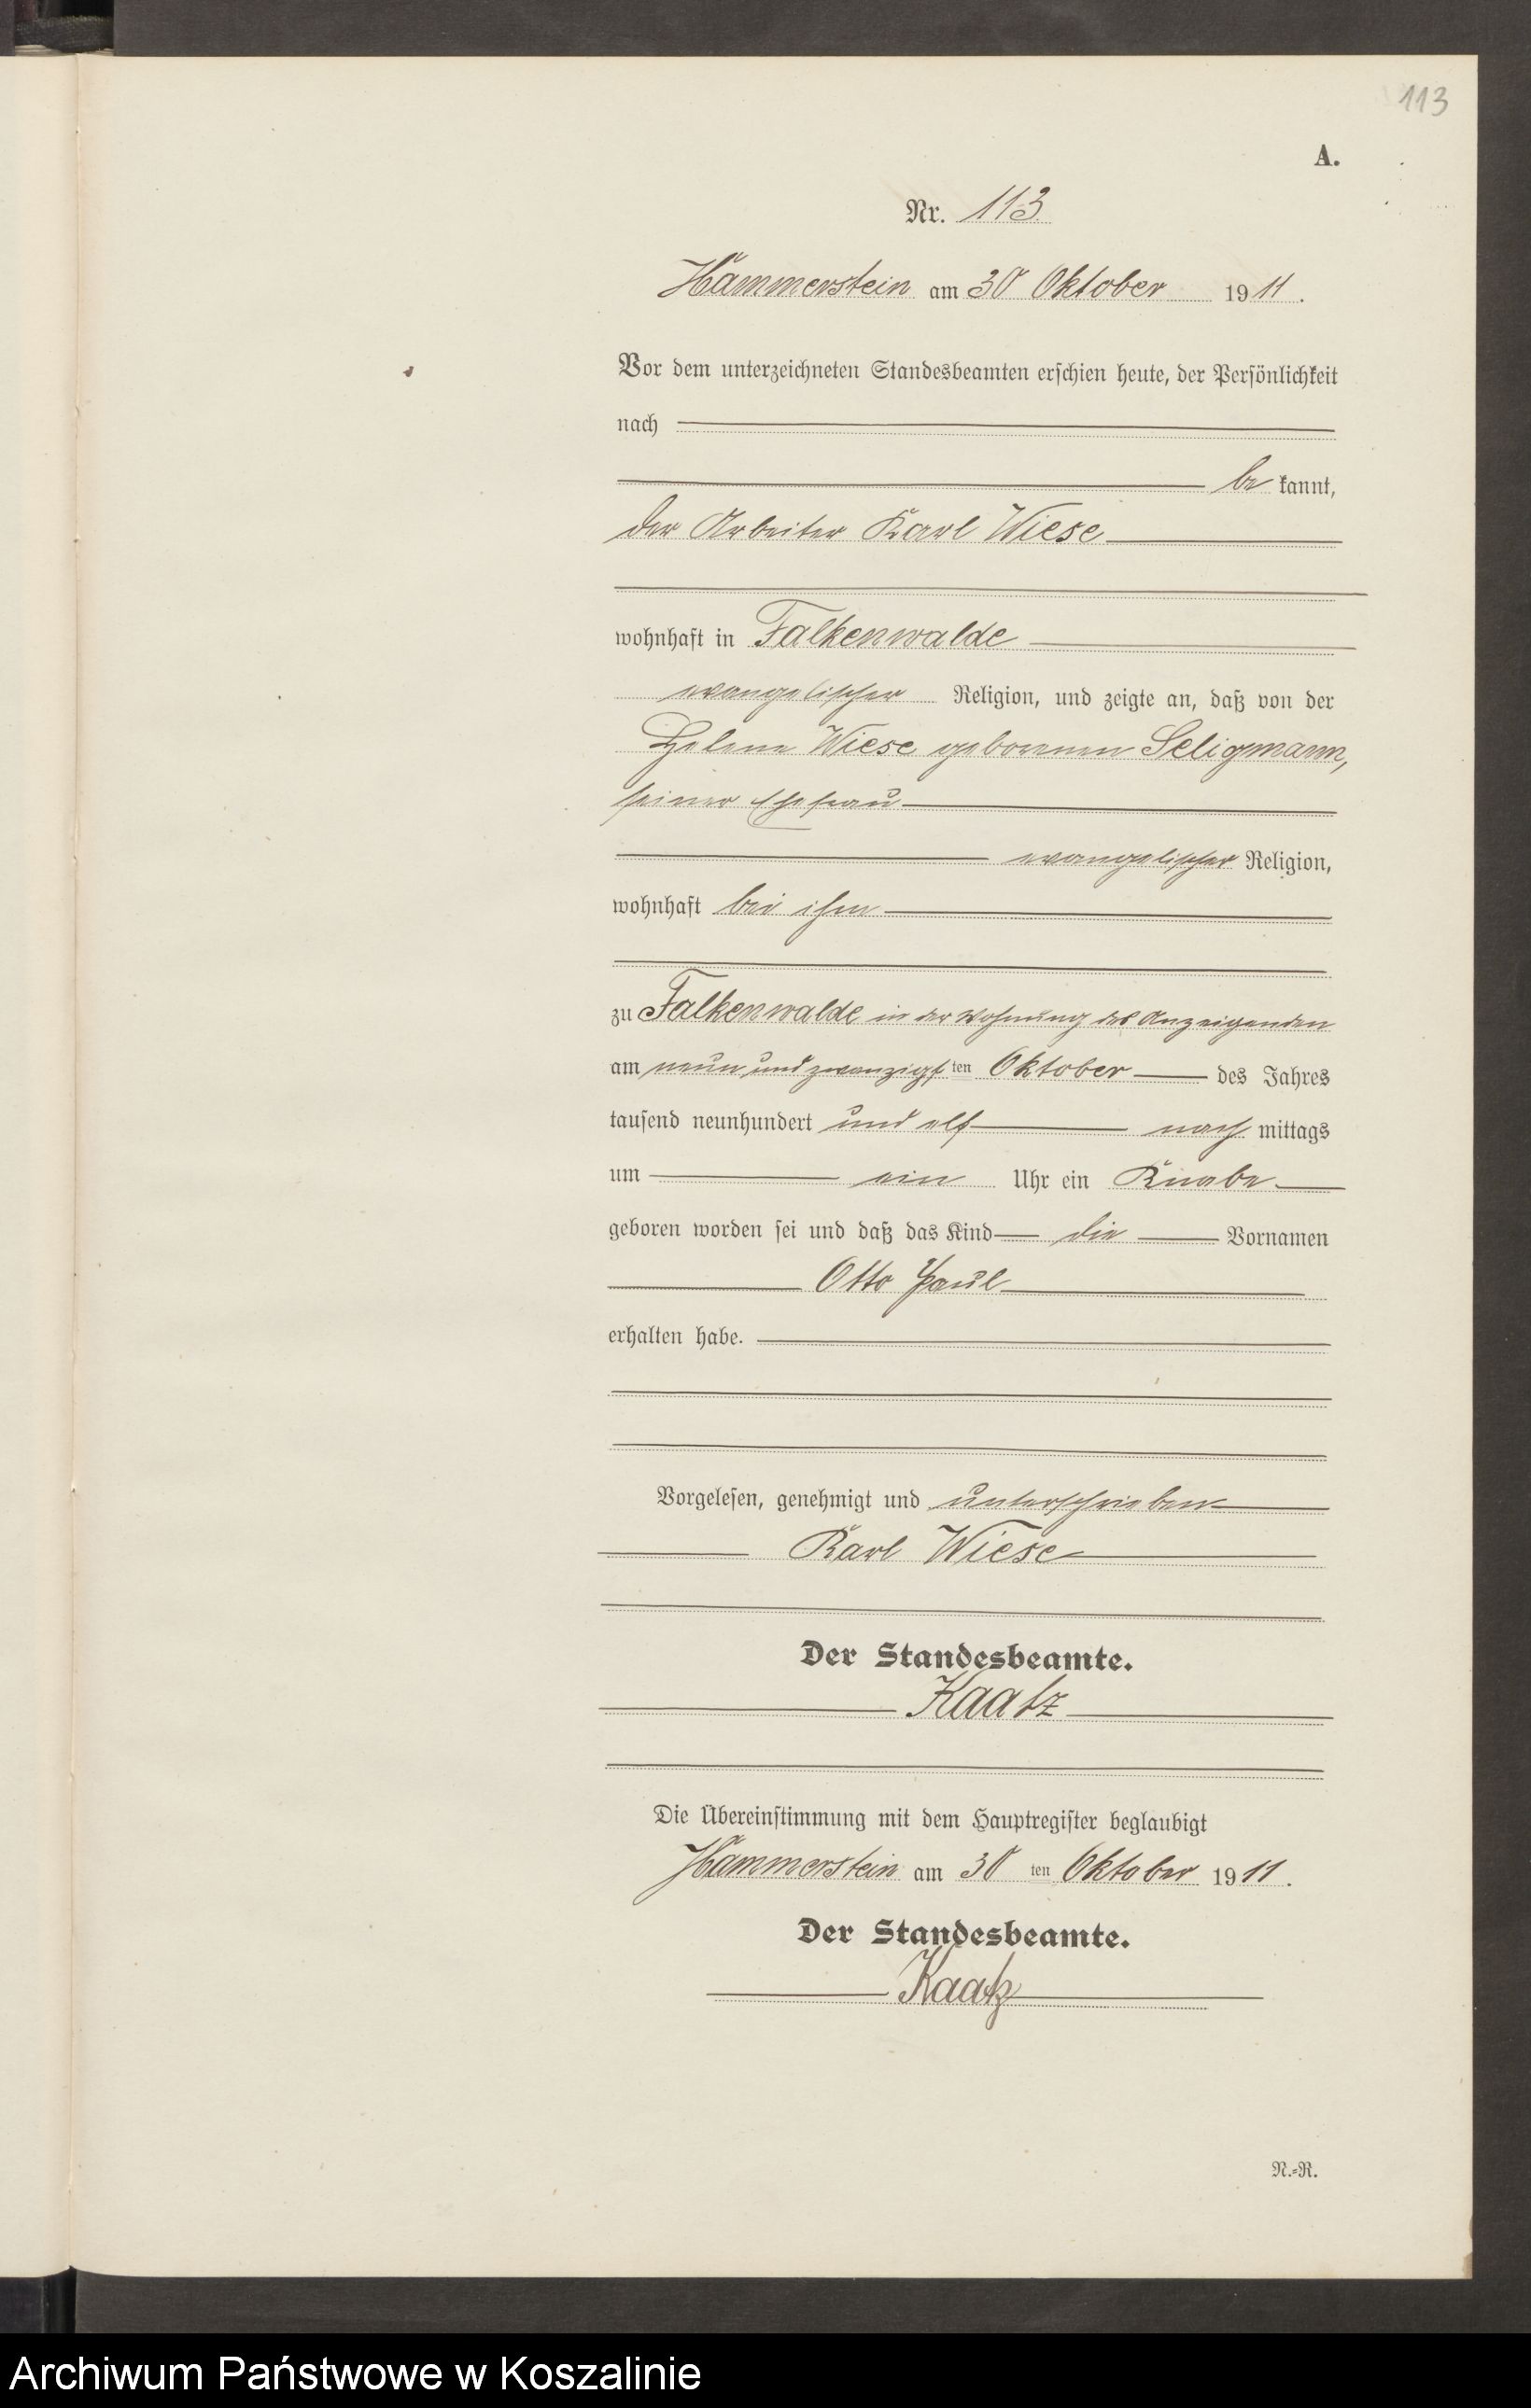 113
A.
Nr. 113.
Hammerstein am 30 Oktober 1911.
Vor dem unterzeichneten Standesbeamten erschien heute, der Persönlichkeit
nach
be kannt,
der Arbeiter Karl Wiese
wohnhaft in Falkenwalde
evangelischer Religion, und zeigte an, daß von der
Helene Wiese geborenen Seligmann,
seiner Ehefrau
evangelischer Religion,
wohnhaft bei ihm
zu Falkenwalde in der Wohnung des Anzeigenden
am neun und zwanzigsten Oktober des Jahres
tausend neunhundert und elf nach mittags
um ein Uhr ein Knabe
geboren worden sei und daß das Kind die Vornamen
Otto Paul
erhalten habe.
Vorgelesen, genehmigt und unterschrieben
Karl Wiese
Der Standesbeamte.
Kaatz
Die Übereinstimmung mit dem Hauptregister beglaubigt
Hammerstein am 30 ten Oktober 1911.
Der Standesbeamte.
Kaatz
N.-R.
Archiwum Państwowe w Koszalinie